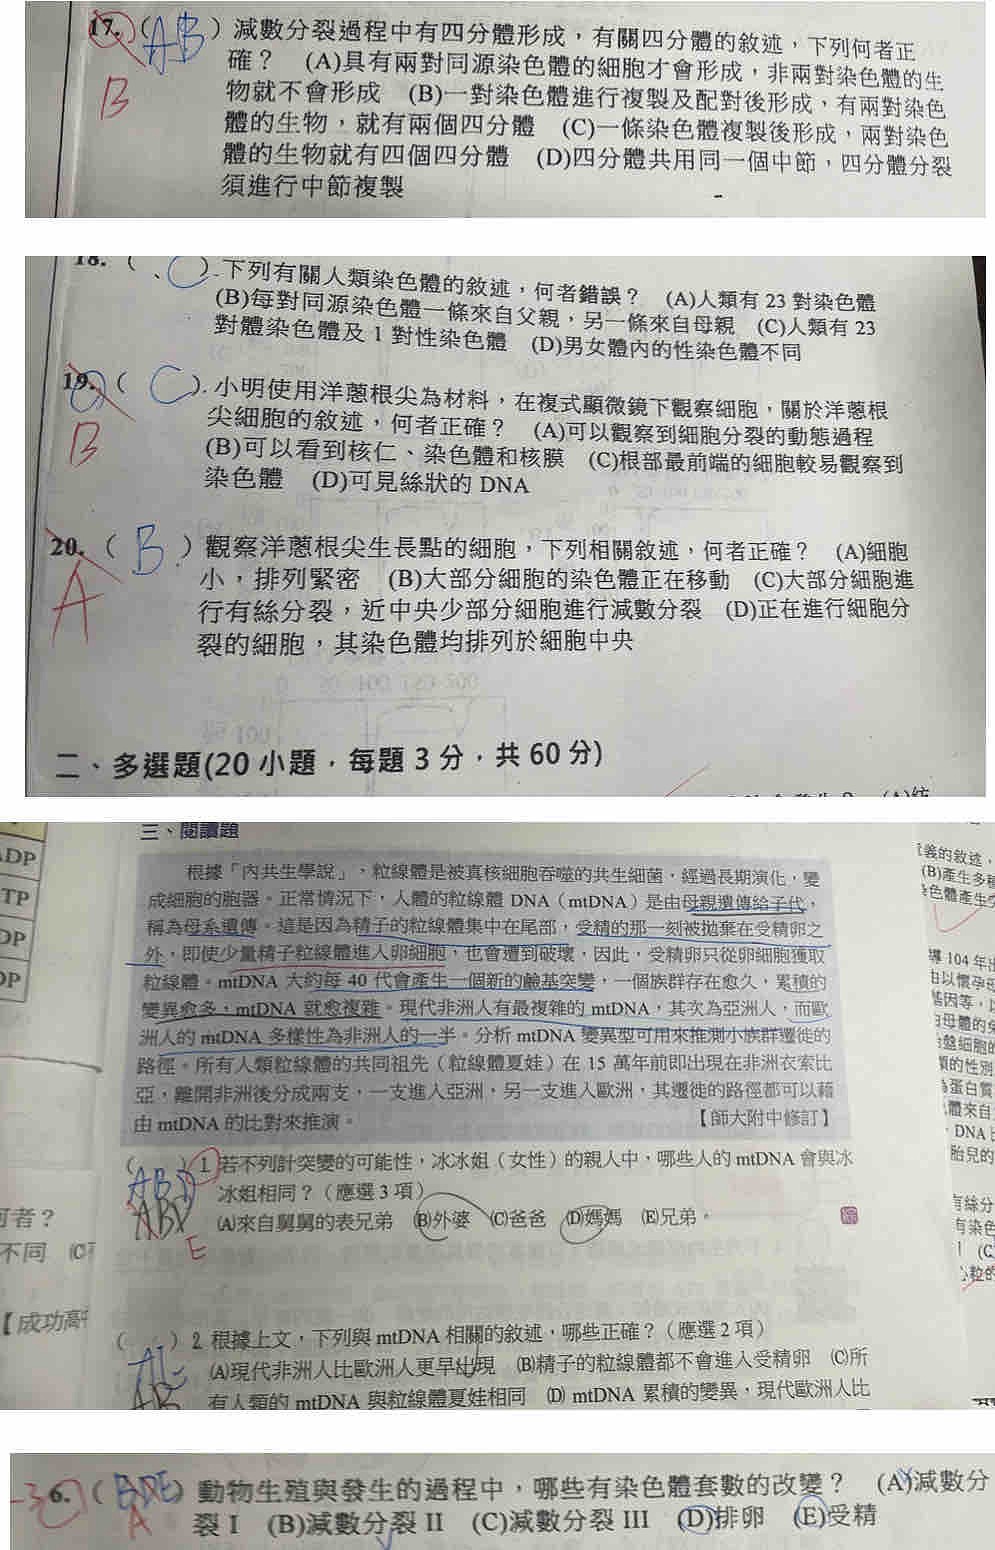 17. (AB) 減數分裂過程中有四分體形成，有關四分體的敘述，下列何者正
確？ (A)具有兩對同源染色體的細胞才會形成，非兩對染色體的生
B
物就不會形成 (B)一對染色體進行複製及配對後形成，有兩對染色
體的生物，就有兩個四分體 (C)一條染色體複製後形成，兩對染色
體的生物就有四個四分體 (D)四分體共用同一個中節，四分體分裂
須進行中節複製
18. (C) 下列有關人類染色體的敘述，何者錯誤？ (A)人類有 23 對染色體
(B)每對同源染色體一條來自父親，另一條來自母親 (C)人類有 23
對體染色體及 1 對性染色體 (D)男女體內的性染色體不同
19. (C) 小明使用洋蔥根尖為材料，在複式顯微鏡下觀察細胞，關於洋蔥根
尖細胞的敘述，何者正確？ (A)可以觀察到細胞分裂的動態過程
B
(B)可以看到核仁、染色體和核膜 (C)根部最前端的細胞較易觀察到
染色體 (D)可見絲狀的 DNA
20. (B) 觀察洋蔥根尖生長點的細胞，下列相關敘述，何者正確？ (A)細胞
A
小，排列緊密 (B)大部分細胞的染色體正在移動 (C)大部分細胞進
行有絲分裂，近中央少部分細胞進行減數分裂 (D)正在進行細胞分
裂的細胞，其染色體均排列於細胞中央
二、多選題(20 小題，每題 3 分，共 60 分)
三、閱讀題
根據「內共生學說」，粒線體是被真核細胞吞噬的共生細菌，經過長期演化，變
成細胞的胞器。正常情況下，人體的粒線體 DNA（mtDNA）是由母親遺傳給子代，
稱為母系遺傳。這是因為精子的粒線體集中在尾部，受精的那一刻被拋棄在受精卵之
外，即使少量精子粒線體進入卵細胞，也會遭到破壞，因此，受精卵只從卵細胞獲取
粒線體。mtDNA 大約每 40 代會產生一個新的鹼基突變，一個族群存在愈久，累積的
變異愈多，mtDNA 就愈複雜。現代非洲人有最複雜的 mtDNA，其次為亞洲人，而歐
洲人的 mtDNA 多樣性為非洲人的一半。分析 mtDNA 變異型可用來推測小族群遷徙的
路徑。所有人類粒線體的共同祖先（粒線體夏娃）在 15 萬年前即出現在非洲衣索比
亞，離開非洲後分成兩支，一支進入亞洲，另一支進入歐洲，其遷徙的路徑都可以藉
由 mtDNA 的比對來推演。 【師大附中修訂】
( ABD ) 1. 若不列計突變的可能性，冰冰姐（女性）的親人中，哪些人的 mtDNA 會與冰
冰姐相同？（應選 3 項）
ABD
(A)來自舅舅的表兄弟 (B)外婆 (C)爸爸 (D)媽媽 (E)兄弟。
E
( ) 2. 根據上文，下列與 mtDNA 相關的敘述，哪些正確？（應選 2 項）
(A)現代非洲人比歐洲人更早出現 (B)精子的粒線體都不會進入受精卵 (C)所
AB
有人類的 mtDNA 與粒線體夏娃相同 (D) mtDNA 累積的變異，現代歐洲人比
ADP
TP
DP
DP
何者？
不同
【成功高
義的敘述，
(B)產生多
色體產生
104 年
以懷孕
基因等，
母體的
盤細胞
的性別
蛋白質
體來自
DNA
胎兒的
有絲分
有染色
(C
-3 6. (BDE) 動物生殖與發生的過程中，哪些有染色體套數的改變？ (A)減數分
A
裂 I (B)減數分裂 II (C)減數分裂 III (D)排卵 (E)受精